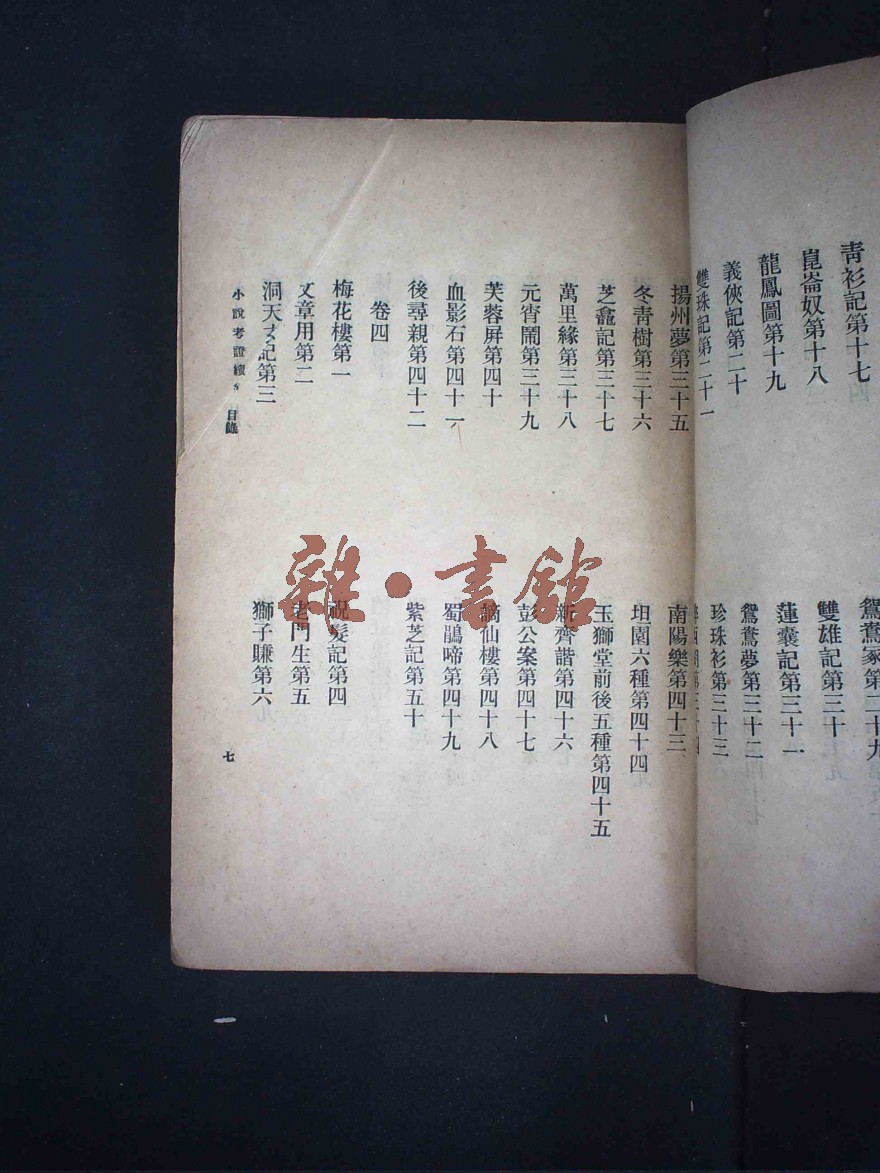 青衫記第十七
崑崙奴第十八
龍鳳圖第十九
義俠記第二十
雙珠記第二十一
鴛鴦冢第二十九
雙雄記第三十
蓮囊記第三十一
鴛鴦夢第三十二
珍珠衫第三十三
第三十四
揚州夢第三十五
冬青樹第三十六
芝龕記第三十七
萬里緣第三十八
元宵鬧第三十九
芙蓉屏第四十
血影石第四十一
後尋親第四十二
南陽樂第四十三
坦園六種第四十四
玉獅堂前後五種第四十五
新齊諧第四十六
彭公案第四十七
謫仙樓第四十八
蜀鵑啼第四十九
紫芝記第五十
卷四
梅花樓第一
文章用第二
洞天玄記第三
祝髮記第四
老門生第五
獅子賺第六
小說考證續 目錄
七
雜·書館